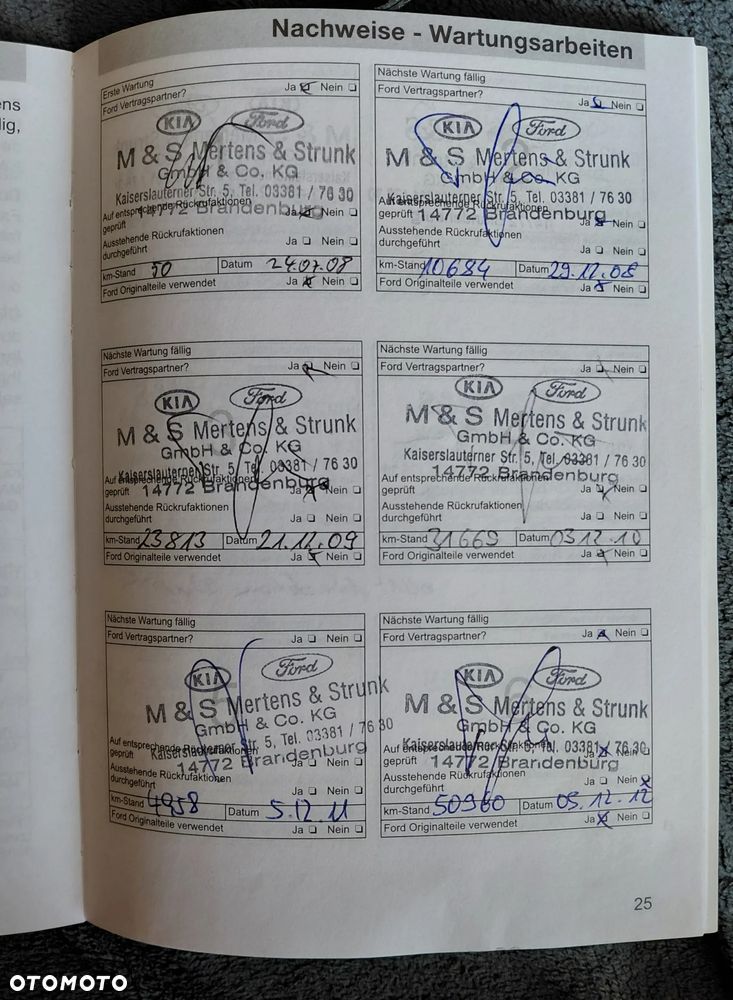 ens
lig,
Nachweise - Wartungsarbeiten
Erste Wartung
Ford Vertragspartner? Ja Nein
KIA Ford
M & S Mertens & Strunk
GmbH & Co. KG
Kaiserslauterner Str. 5, Tel. 03381 / 76 30
14772 Brandenburg
Auf entsprechende Rückrufaktionen
geprüft Ja Nein
Ausstehende Rückrufaktionen
durchgeführt Ja Nein
km-Stand 50 Datum 24.07.08
Ford Originalteile verwendet Ja Nein
Nächste Wartung fällig
Ford Vertragspartner? Ja Nein
KIA Ford
M & S Mertens & Strunk
GmbH & Co. KG
Kaiserslauterner Str. 5, Tel. 03381 / 76 30
14772 Brandenburg
Auf entsprechende Rückrufaktionen
geprüft Ja Nein
Ausstehende Rückrufaktionen
durchgeführt Ja Nein
km-Stand 10684 Datum 29.12.08
Ford Originalteile verwendet Ja Nein
Nächste Wartung fällig
Ford Vertragspartner? Ja Nein
KIA Ford
M & S Mertens & Strunk
GmbH & Co. KG
Kaiserslauterner Str. 5, Tel. 03381 / 76 30
14772 Brandenburg
Auf entsprechende Rückrufaktionen
geprüft Ja Nein
Ausstehende Rückrufaktionen
durchgeführt Ja Nein
km-Stand 23813 Datum 21.11.09
Ford Originalteile verwendet Ja Nein
Nächste Wartung fällig
Ford Vertragspartner? Ja Nein
KIA Ford
M & S Mertens & Strunk
GmbH & Co. KG
Kaiserslauterner Str. 5, Tel. 03381 / 76 30
14772 Brandenburg
Auf entsprechende Rückrufaktionen
geprüft Ja Nein
Ausstehende Rückrufaktionen
durchgeführt Ja Nein
km-Stand 31669 Datum 03.12.10
Ford Originalteile verwendet Ja Nein
Nächste Wartung fällig
Ford Vertragspartner? Ja Nein
KIA Ford
M & S Mertens & Strunk
GmbH & Co. KG
Kaiserslauterner Str. 5, Tel. 03381 / 76 30
14772 Brandenburg
Auf entsprechende Rückrufaktionen
geprüft Ja Nein
Ausstehende Rückrufaktionen
durchgeführt Ja Nein
km-Stand 4958 Datum 5.12.11
Ford Originalteile verwendet Ja Nein
Nächste Wartung fällig
Ford Vertragspartner? Ja Nein
KIA Ford
M & S Mertens & Strunk
GmbH & Co. KG
Kaiserslauterner Str. 5, Tel. 03381 / 76 30
14772 Brandenburg
Auf entsprechende Rückrufaktionen
geprüft Ja Nein
Ausstehende Rückrufaktionen
durchgeführt Ja Nein
km-Stand 50960 Datum 05.12.12
Ford Originalteile verwendet Ja Nein
25
OTOMOTO